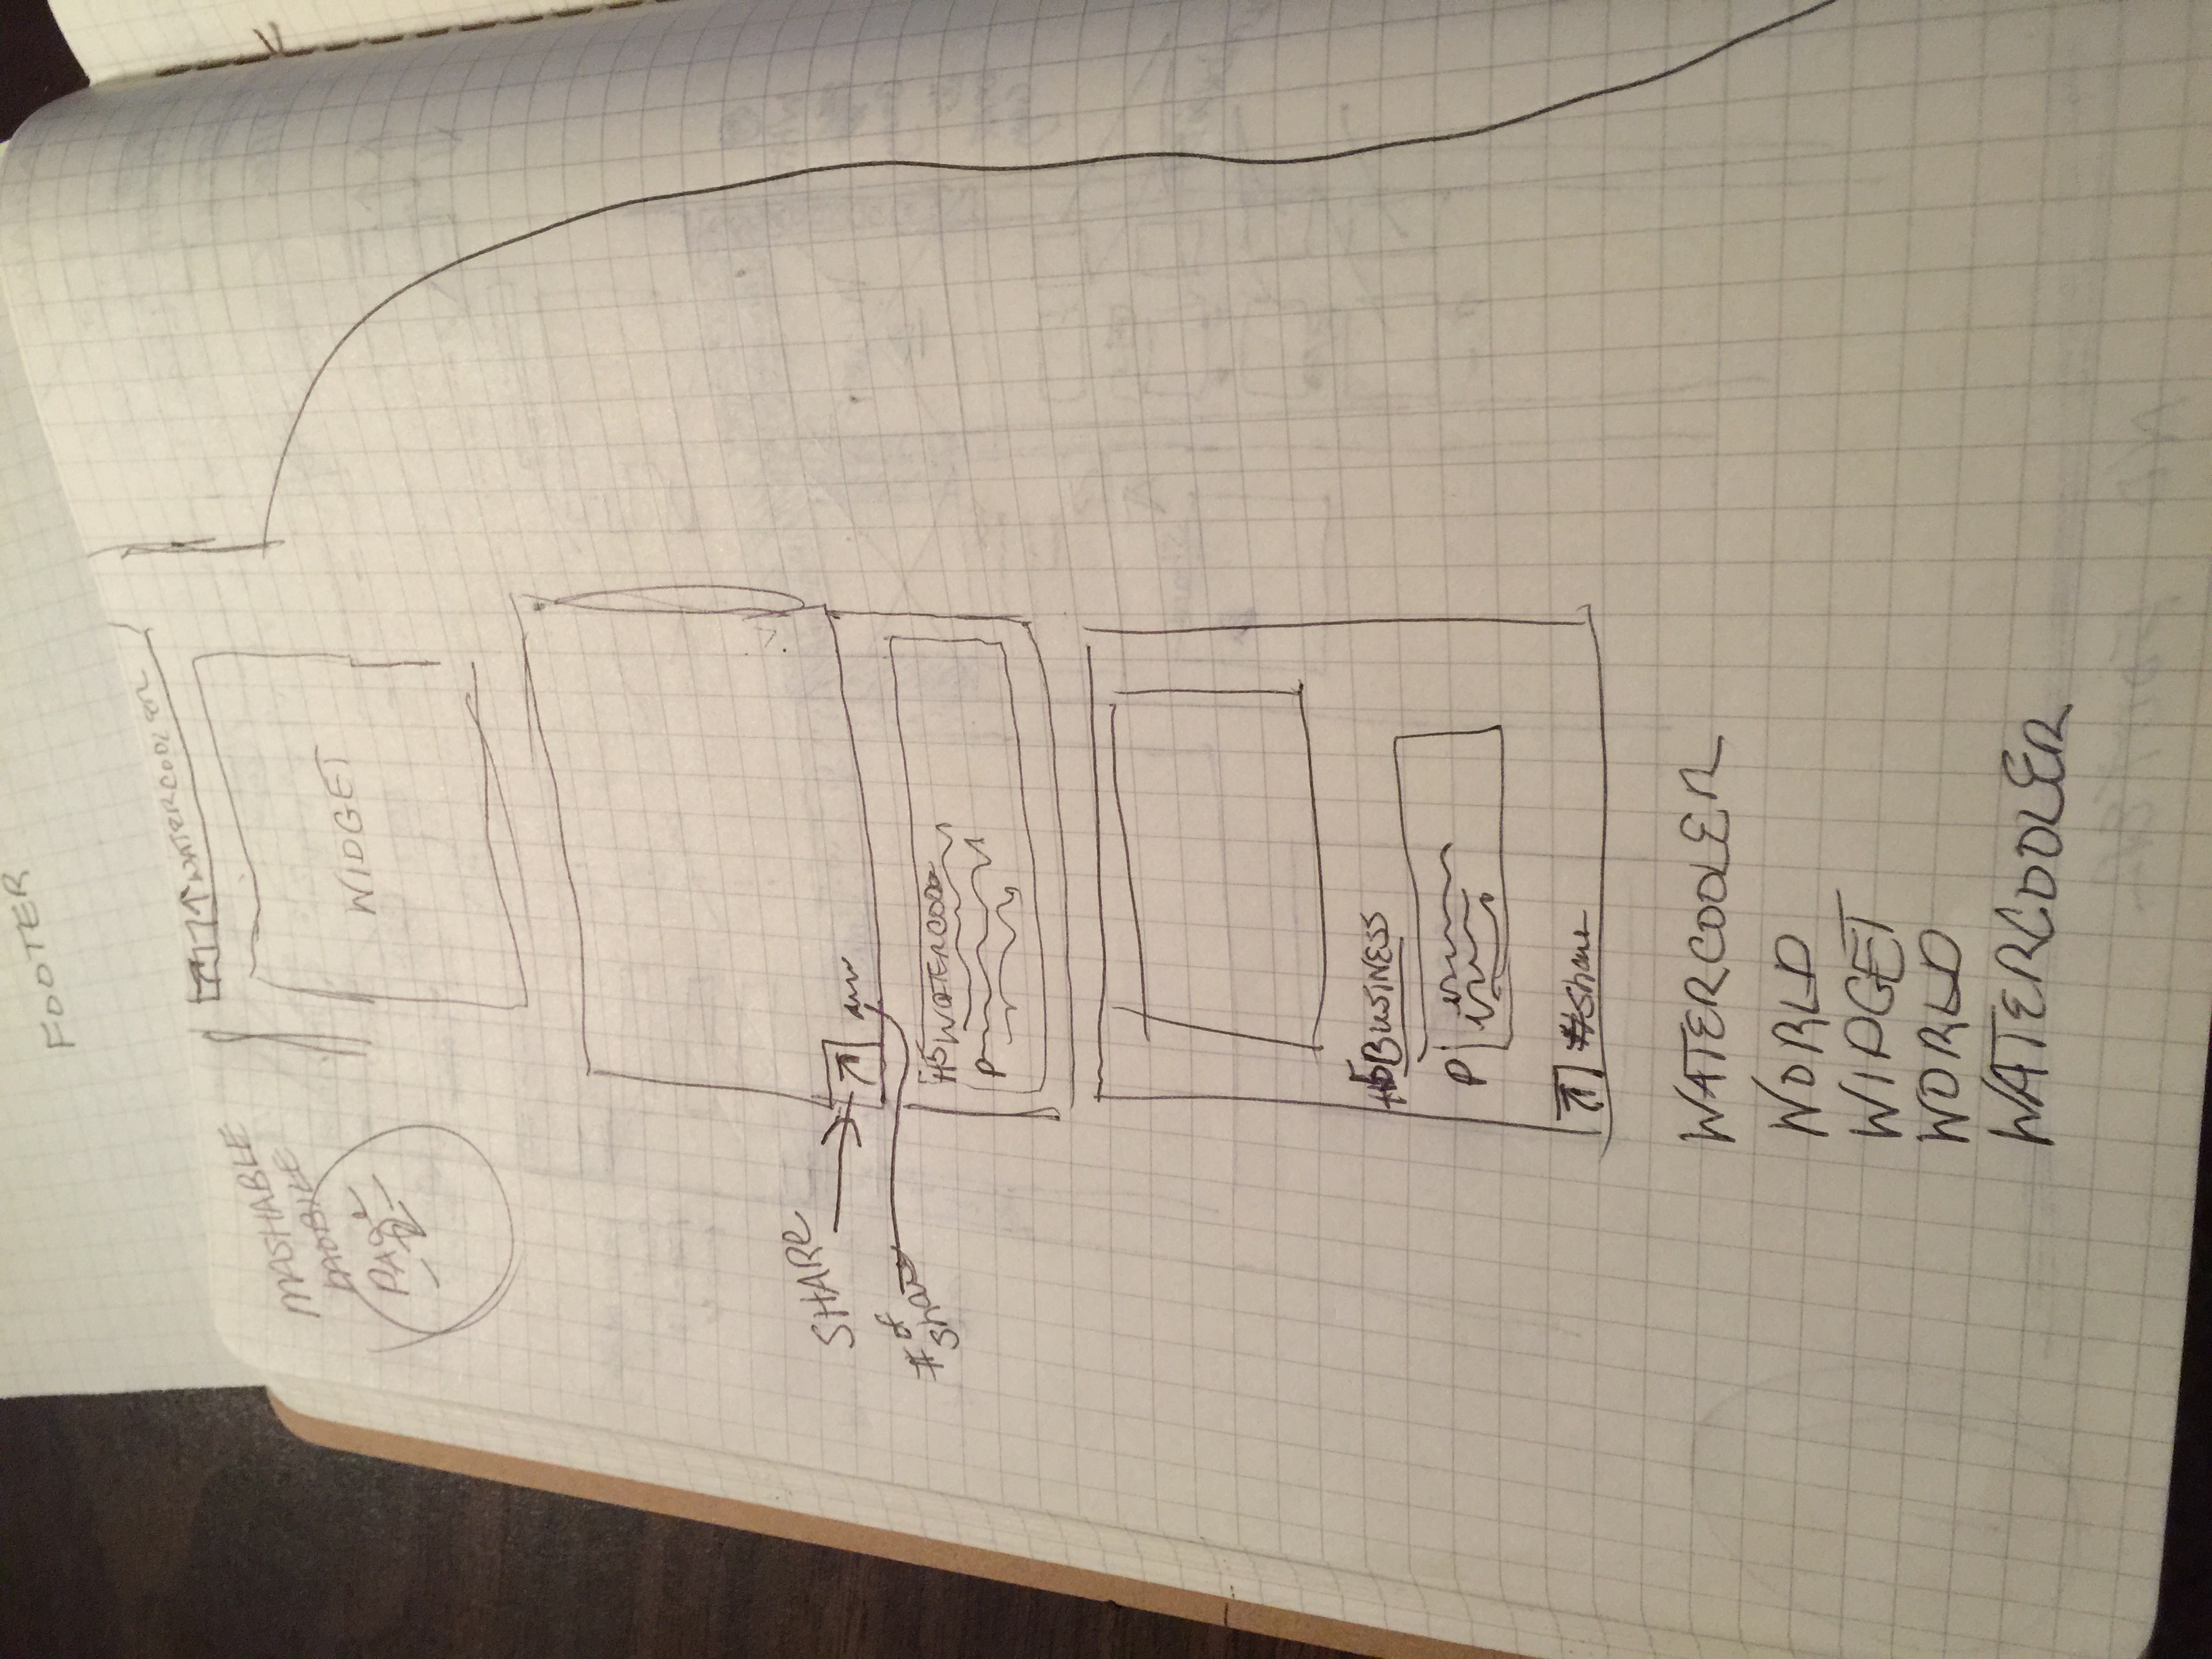 FOOTER
WATERCOOLER
MASHABLE
MOBILE
PAge
-2-
WIDGET
SHARE
# of
share
H5 WATERCOO
P
H5 BUSINESS
P
# Share
WATERCOOLER
WORLD
WIDGET
WORLD
WATERCOOLER